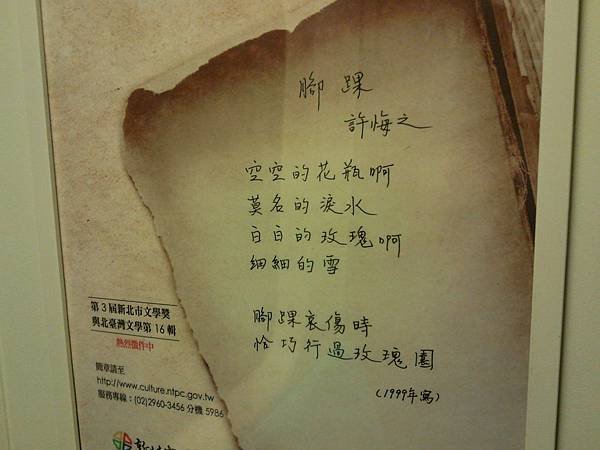 腳踝
許悔之
空空的花瓶啊
莫名的淚水
白白的玫瑰啊
細細的雪
腳踝哀傷時
恰巧行過玫瑰園
(1999年寫)
第3屆新北市文學獎
與北臺灣文學第16輯
熱烈徵件中
簡章請至
http://www.culture.ntpc.gov.tw
服務專線：(02)2960-3456 分機 5986